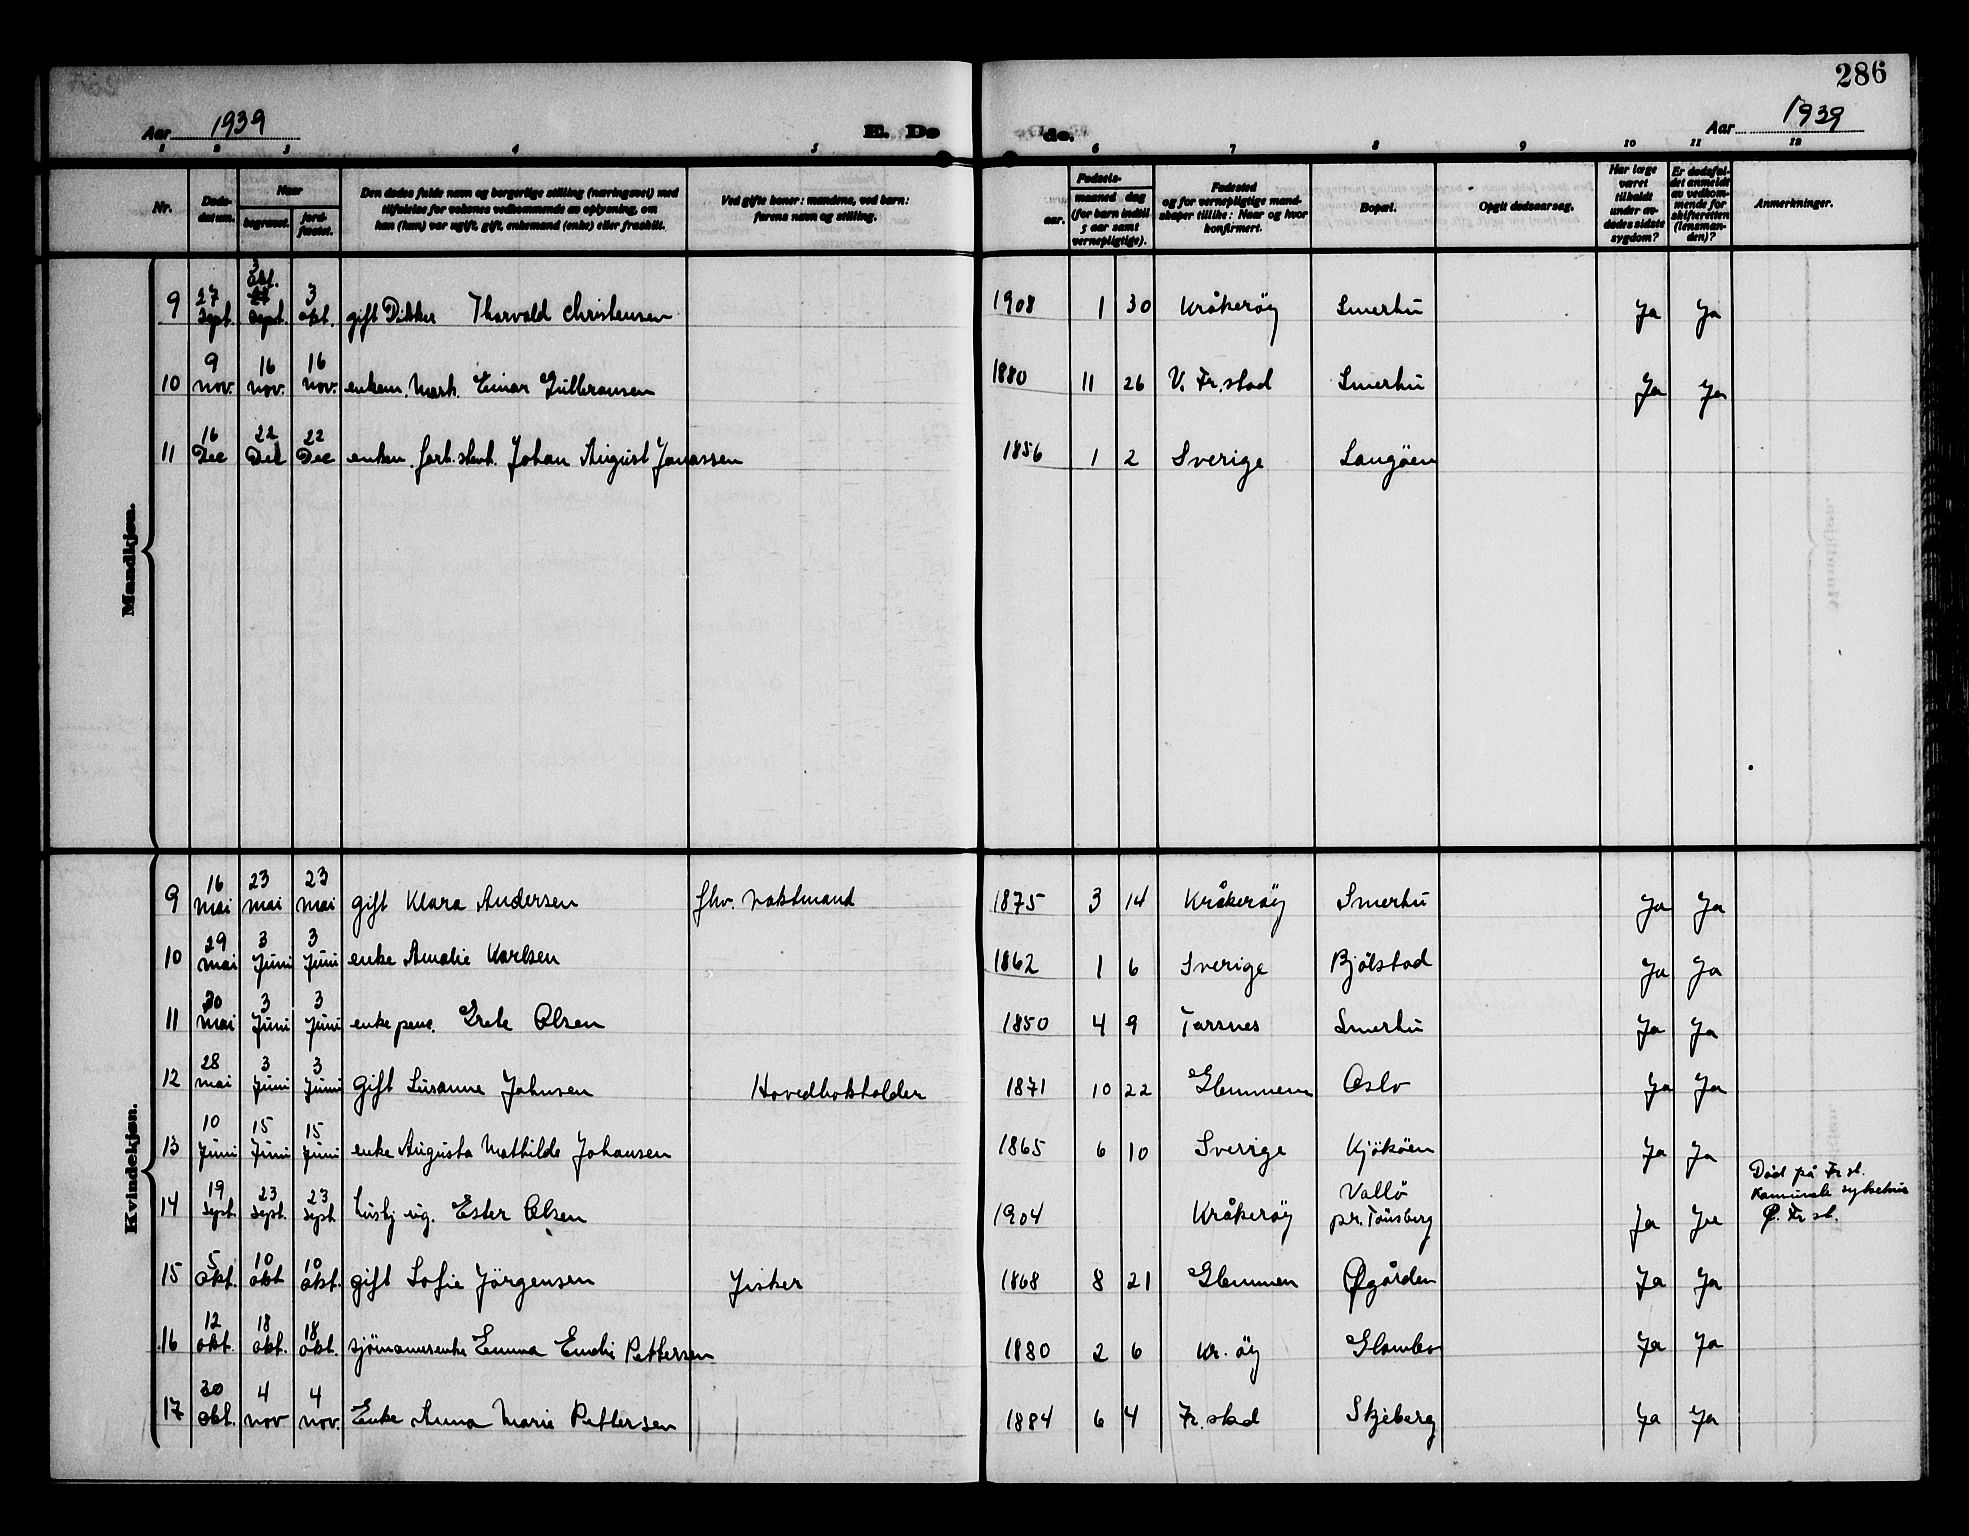 286
Aar 1939
E. Dø
de.
Aar 1939
1 2 3 4 5 6 7 8 9 10 11 12
Nr.
Døds-
datum.
Naar
begravet.
jord-
fæstet.
Den dødes fulde navn og borgerlige stilling (næringsvei) med
tilføielse for voksnes vedkommende av oplysning, om
han (hun) var ugift, gift, enkemand (enke) eller fraskilt.
Ved gifte koner: mandens, ved barn:
farens navn og stilling.
Fødsels-
aar.
maaned dag
(for barn indtil
5 aar samt
vernepligtige).
Fødested
og for vernepligtige mand-
skaper tillike: Naar og hvor
konfirmert.
Bopæl.
Opgit dødsaarsag.
Har læge
været
tilkaldt
under av-
dødes sidste
sygdom?
Er dødsfal-
det anmeldt
av vedkom-
mende for
skifteretten
(lensman-
den)?
Anmerkninger.
Mandkjøn.
9 27 sept. 3 okt. sept. 3 okt. gift Dikker Thorvald Christensen 1908 1 30 Kråkerøy Smertu Ja Ja
10 9 nov. 16 nov. 16 nov. enkem. Mark. Einar Gulbransen 1880 11 26 V. Fr.stad Smertu Ja Ja
11 16 Dec 22 Dec 22 Dec enkem. forh. Johan August Jonassen 1856 1 2 Sverige Langöen
Kvindekjøn.
9 16 mai 23 mai 23 mai gift Klara Andersen fhv. vaktmand 1875 3 14 Kråkerøy Smertu Ja Ja
10 29 mai 3 Juni 3 Juni enke Amalie Karlsen 1862 1 6 Sverige Bjölstad Ja Ja
11 30 mai 3 Juni 3 Juni enke pens. Grete Olsen 1850 4 9 Torsnes Smertu Ja Ja
12 28 mai 3 Juni 3 Juni gift Susanne Johnsen Hovedbokholder 1871 10 22 Glemmen Oslo Ja Ja
13 10 Juni 15 Juni 15 Juni enke Augusta Mathilde Johansen 1865 6 10 Sverige Kjököen Ja Ja
14 19 sept. 23 sept. 23 sept husbj ug. Ester Olsen 1904 Kråkerøy Vallö pr. Tönsberg Ja Ja Död på Fr.st. Komunale sykehus Ø. Fr.st.
15 5 okt. 10 okt 10 okt. gift Sofie Jörgensen Fisker 1868 8 21 Glemmen Øgården Ja Ja
16 12 okt. 18 okt. 18 okt. sjömannsenke Emma Emelie Pettersen 1880 2 6 Kr.öy Glombo Ja Ja
17 30 okt. 4 nov 4 nov. Enke Anna Marie Pettersen 1884 6 4 Fr.stad Skjeberg Ja Ja